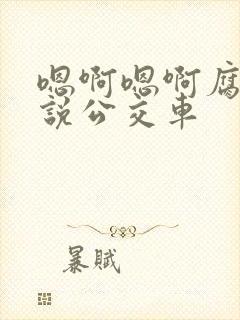 嗯啊嗯啊腐
説公交車
暴賦